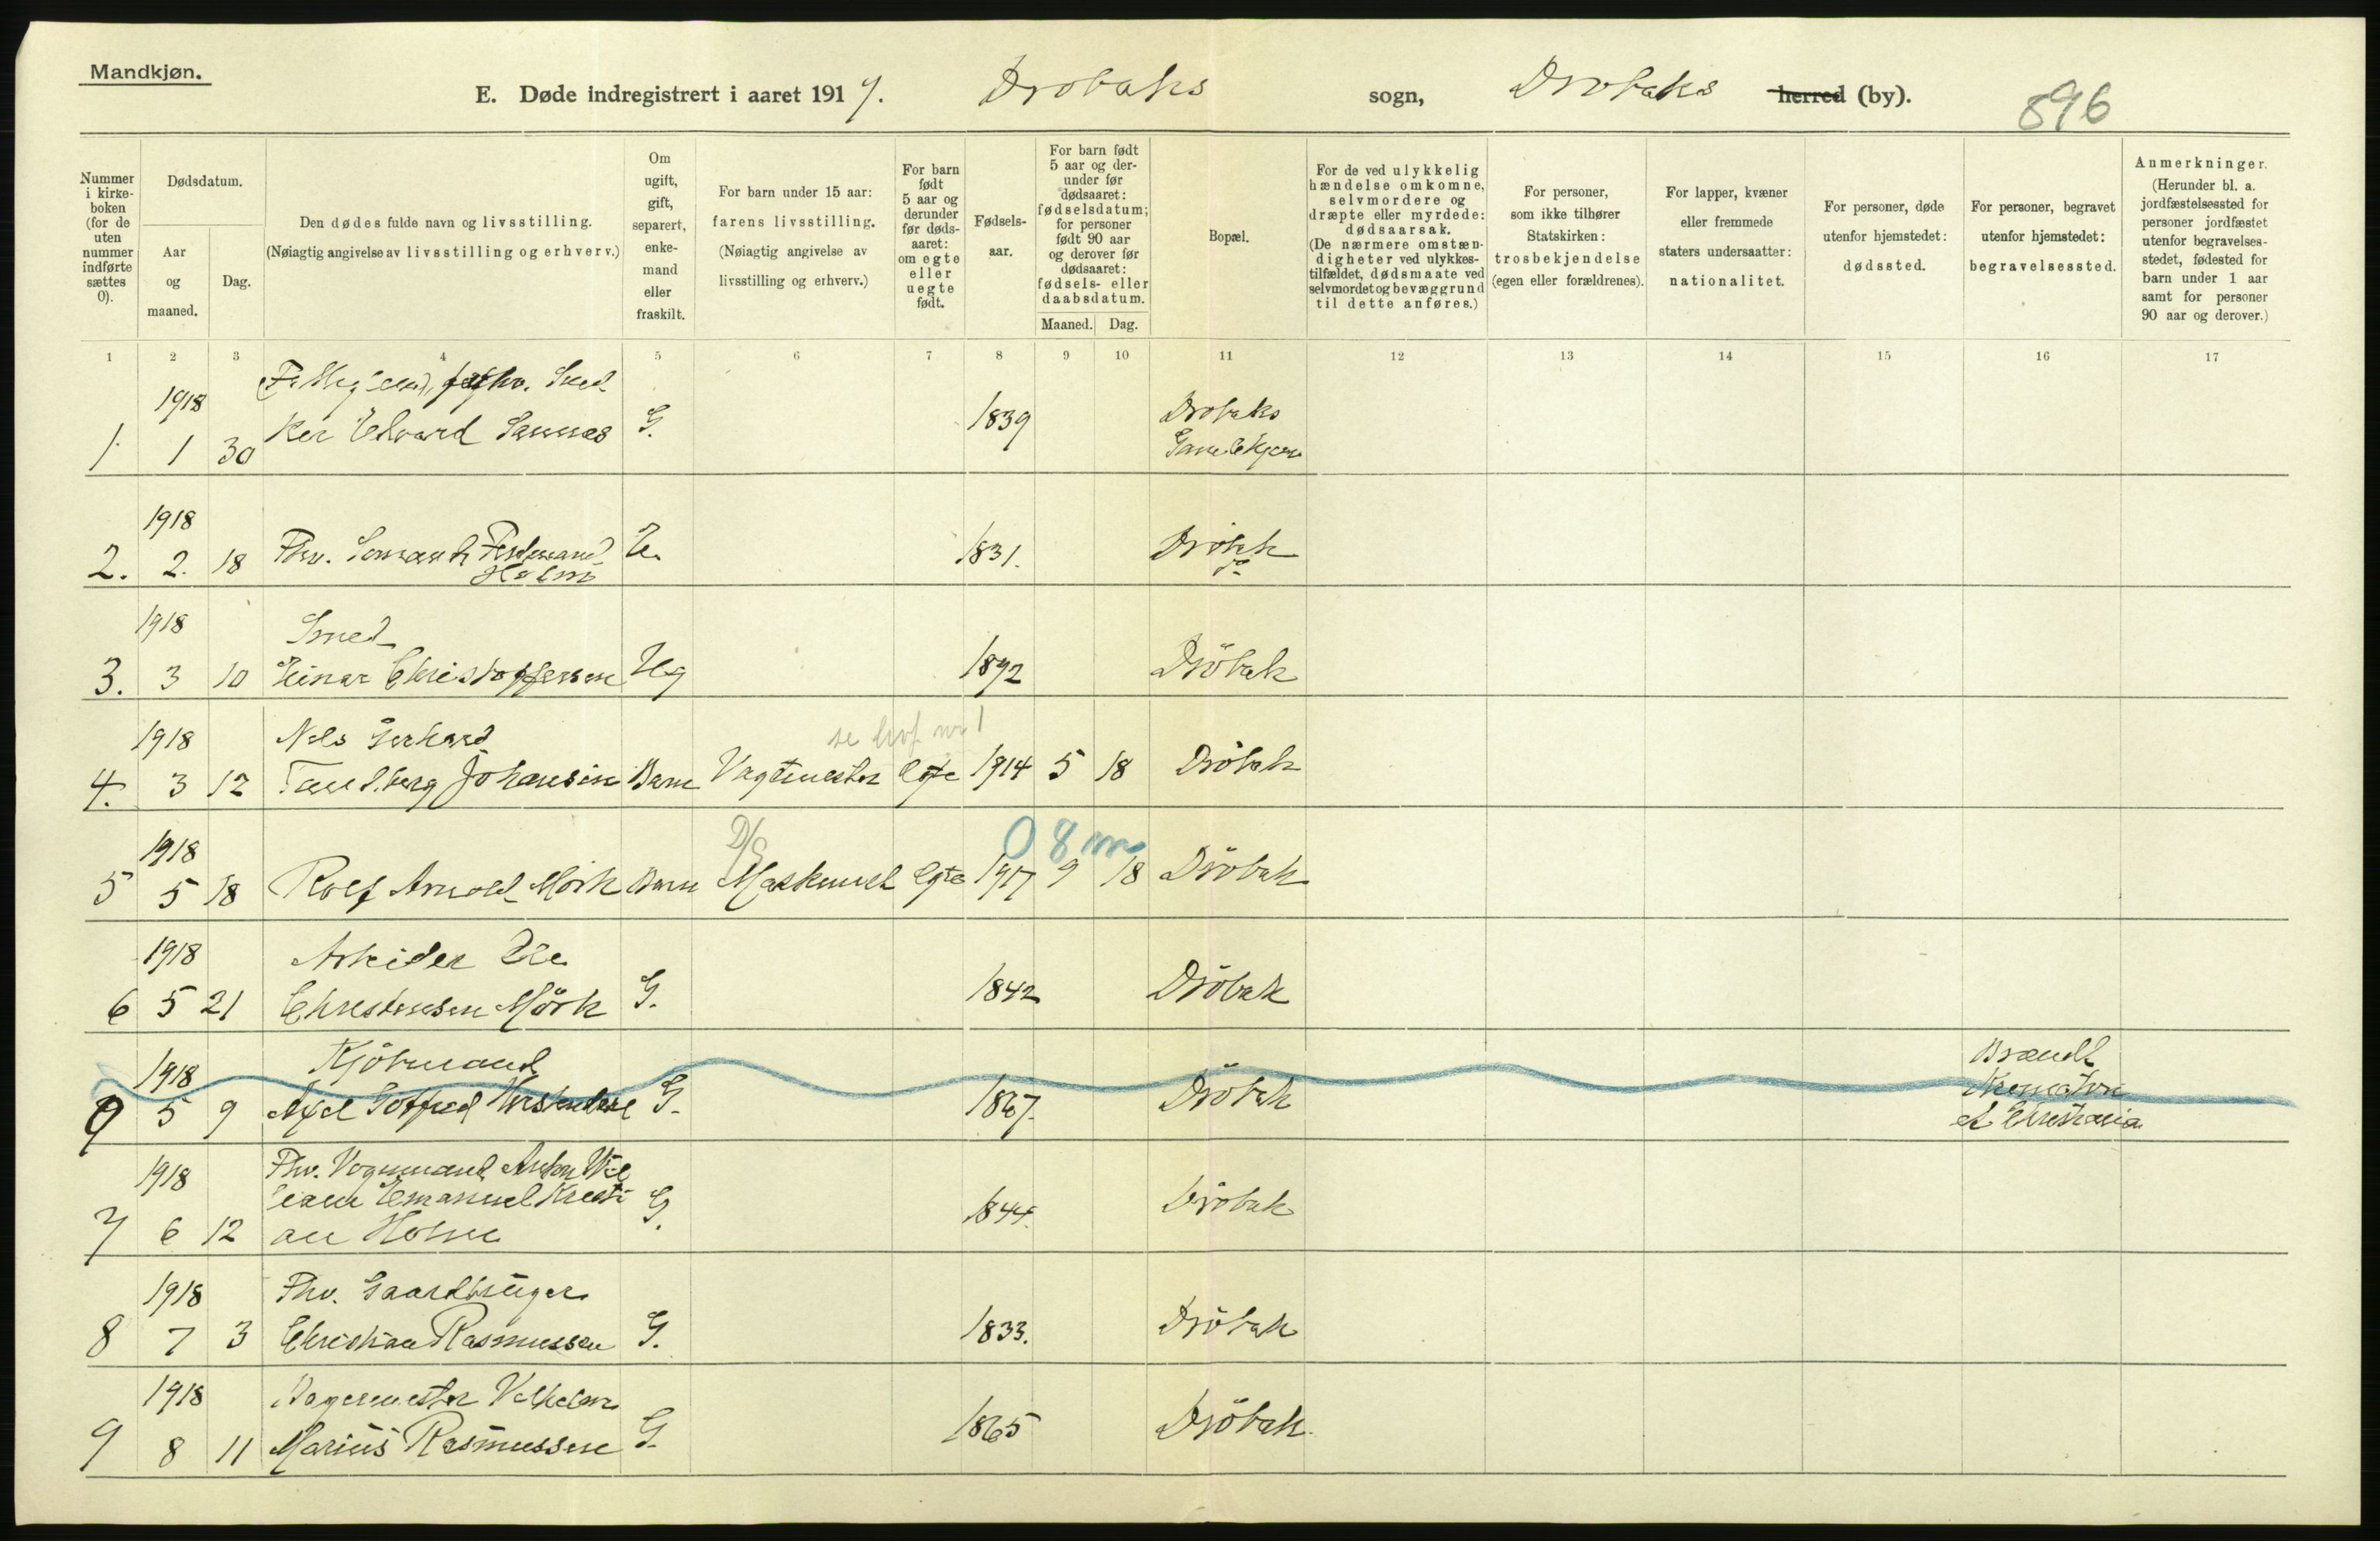 Mandkjøn.
E. Døde indregistrert i aaret 191 Drøbaks sogn, Drøbaks herred (by).
896
Nummer i kirke-boken (for de uten nummer indførte sættes 0).
Dødsdatum.
Aar og maaned.
Dag.
Den dødes fulde navn og livsstilling.
(Nøiagtig angivelse av livsstilling og erhverv.)
Om ugift, gift, separert, enke-mand eller fraskilt.
For barn under 15 aar:
farens livsstilling.
(Nøiagtig angivelse av livsstilling og erhverv.)
For barn født 5 aar og derunder før døds-aaret: om egte eller uegte født.
Fødsels-aar.
For barn født 5 aar og der-under før dødsaaret: fødselsdatum; for personer født 90 aar og derover før dødsaaret: fødsels- eller daabsdatum.
Maaned. Dag.
Bopæl.
For de ved ulykkelig hændelse omkomne, selvmordere og dræpte eller myrdede: dødsaarsak.
(De nærmere omstæn-digheter ved ulykkes-tilfældet, dødsmaate ved selvmordet og bevæggrund til dette anføres.)
For personer, som ikke tilhører Statskirken: trosbekjendelse (egen eller forældrenes).
For lapper, kvæner eller fremmede staters undersaatter: nationalitet.
For personer, døde utenfor hjemstedet: dødssted.
For personer, begravet utenfor hjemstedet: begravelsessted.
Anmerkninger.
(Herunder bl. a. jordfæstelsessted for personer jordfæstet utenfor begravelses-stedet, fødested for barn under 1 aar samt for personer 90 aar og derover.)
1 2 3 4 5 6 7 8 9 10 11 12 13 14 15 16 17
1918
fhv. Sned
1. 1 30 ker Edvard G. 1839 Drøbaks
Gamlehjem
1918
2. 2. 18 Fhv. Ferdinand 1831. Drøbak
Holm
1918
Smed
3. 3 10 Einar Christoffersen Ug 1892 Drøbak
1918 Nils Gerhard
se nr. 1
4. 3 12 Tandberg Johansen Barn Vagtmester Egte 1914 5 18 Drøbak
1918 D/S 0 8 m
5 5 18 Rolf Arnold Mörk Barn Maskinist Egte 1917 9 18 Drøbak
1918 Arbeider Ole
6 5 21 Christensen Mörk G. 1842 Drøbak
1918 Kjöbmand Brændt
0 5 9 Axel Gotfred G. 1867. Drøbak Krematori
et Christiania
1918 Fhv. Vognmand Anton Wil
liam Emanuel Kristi
7 6 12 an Holm G. 1844. Drøbak
1918 Fhv. Gaardbruger
8 7 3 Christian Rasmussen G. 1833. Drøbak
1918 Bagermester Vilhelm
9 8 11 Marius Rasmussen G. 1865 Drøbak